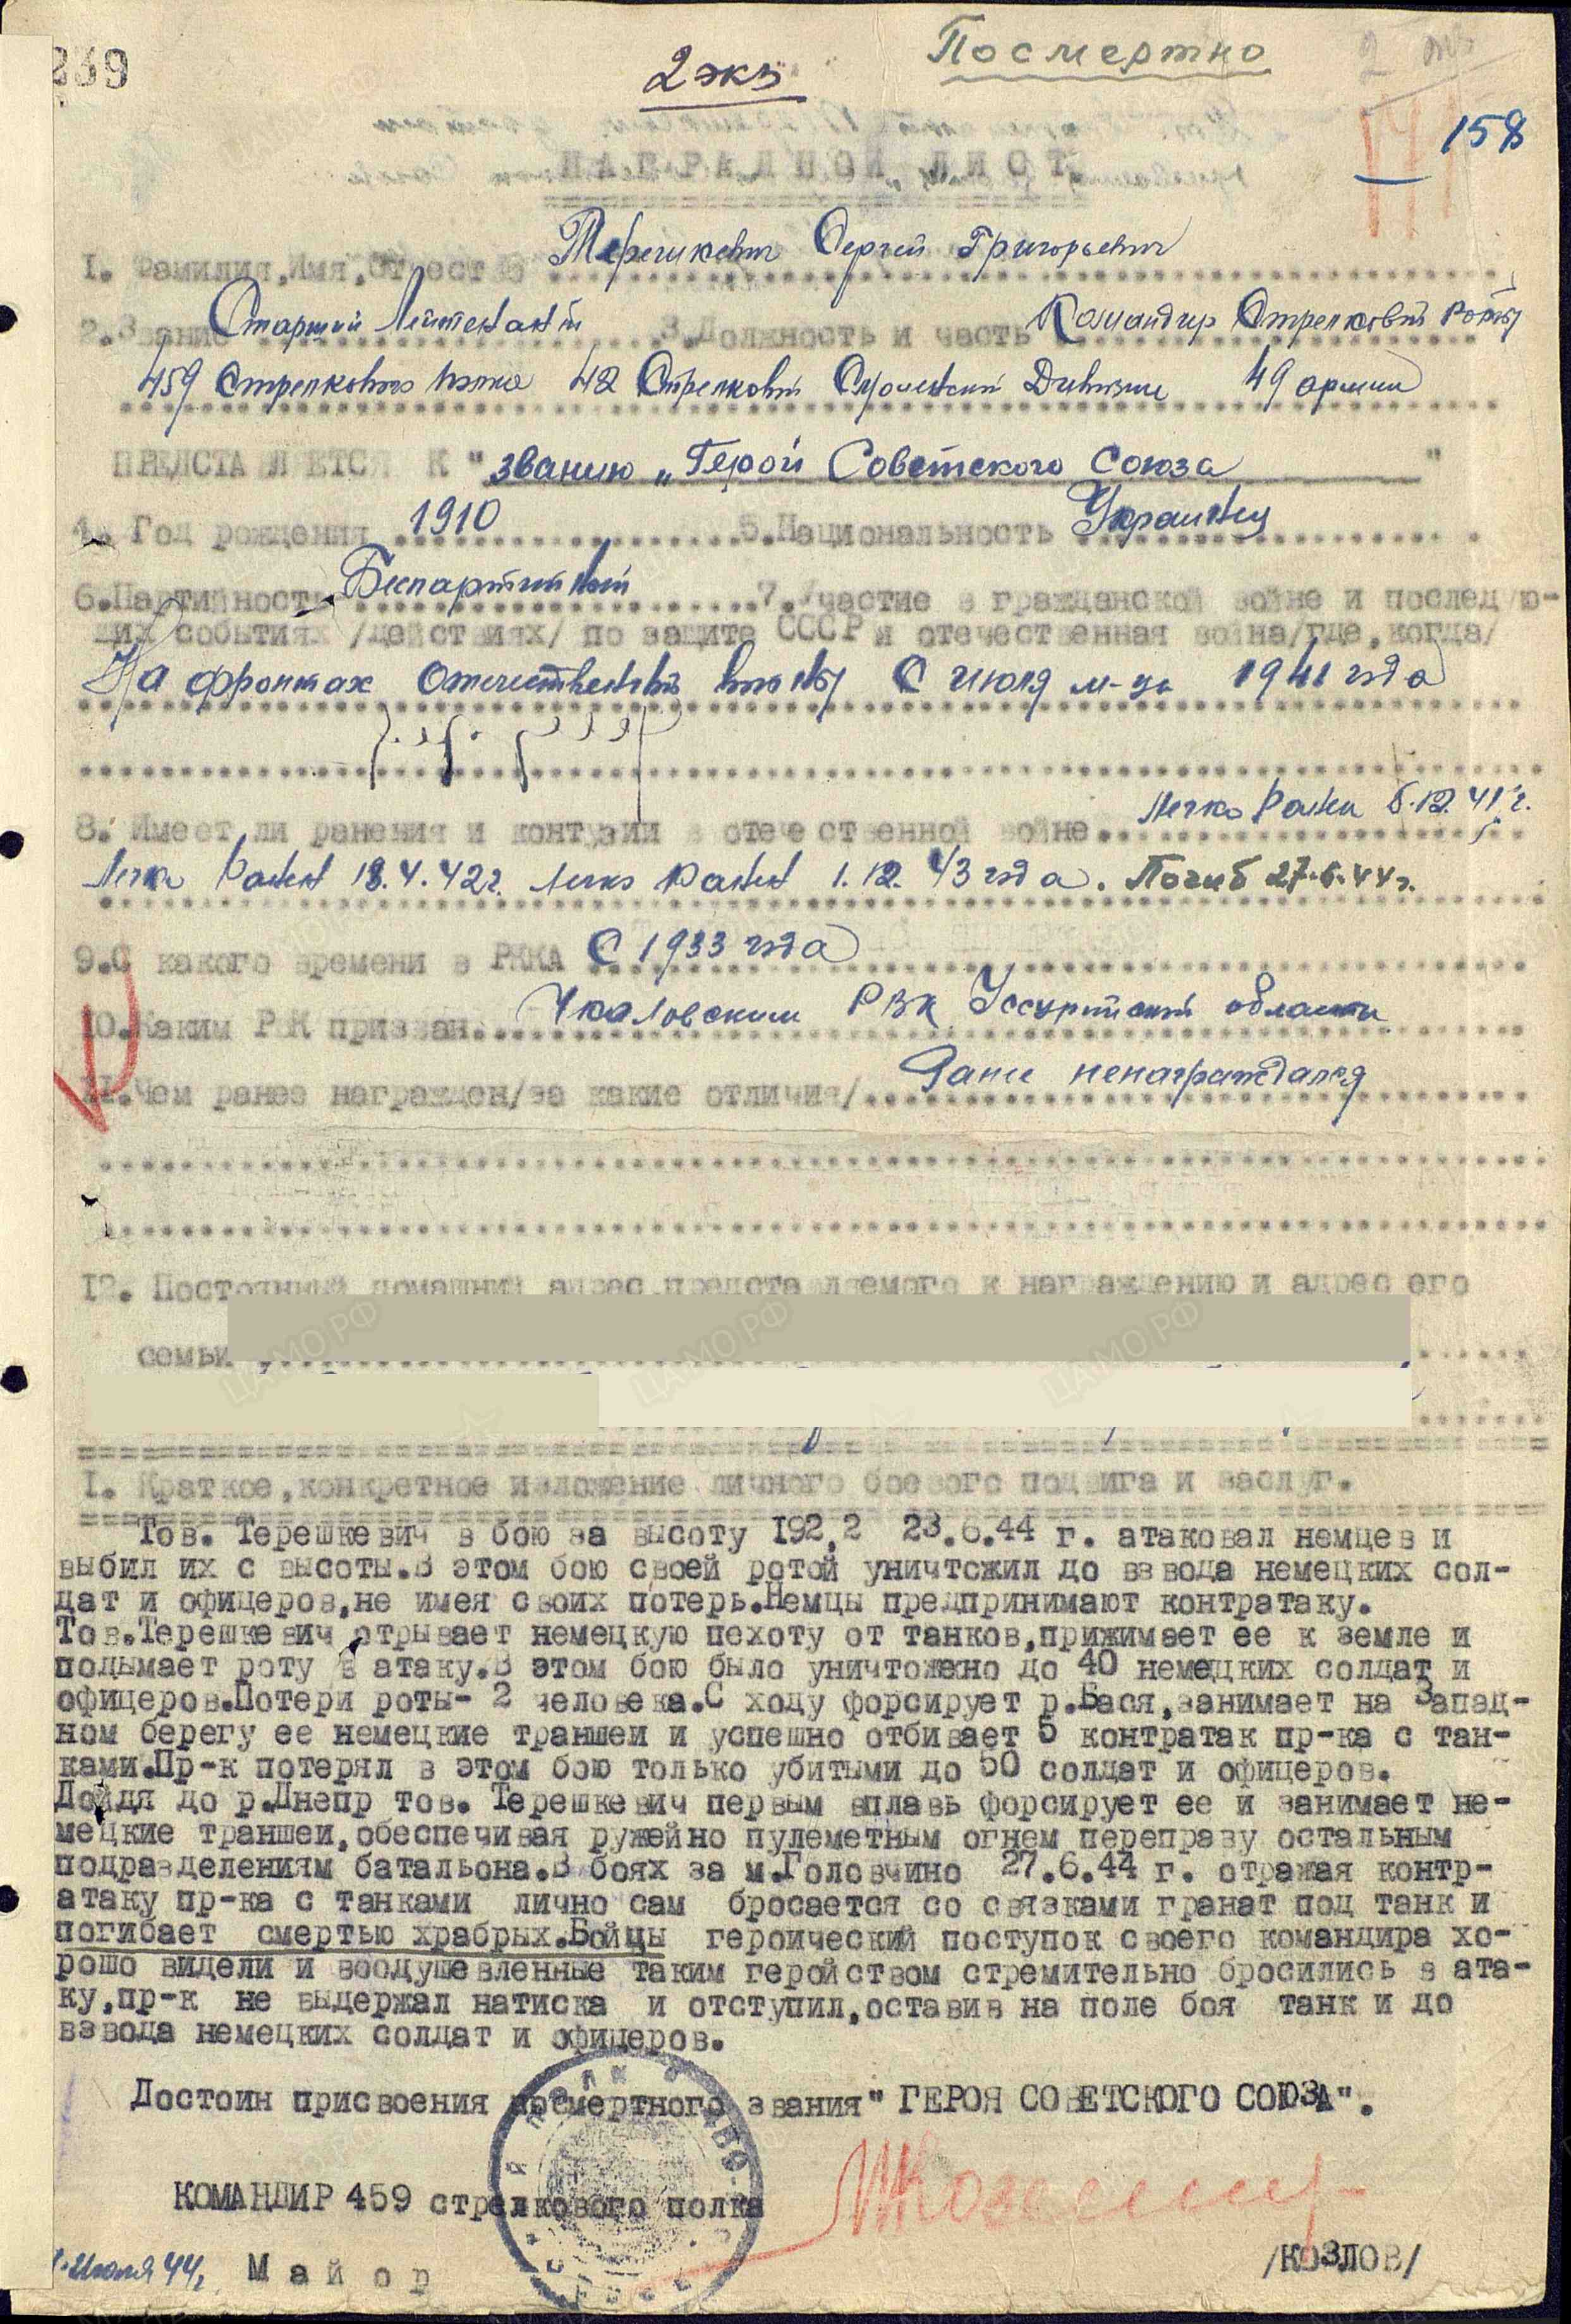 239
2 экз
Посмертно
158
НАГРАДНОЙ ЛИСТ
1. Фамилия, Имя, Отчество Терешкевич Сергей Григорьевич
2. Звание Старший Лейтенант 3. Должность и часть Командир Стрелковой роты
459 Стрелкового полка 42 Стрелковой Смоленской Дивизии 49 армии
ПРЕДСТАВЛЯЕТСЯ К "званию „Герой Советского Союза"
4. Год рождения 1910 5. Национальность Украинец
6. Партийность Беспартийный 7. Участие в гражданской войне и последую-
щих событиях /действиях/ по защите СССР и отечественная война/где, когда/
На фронтах Отечественной войны С июля м-ца 1941 года
8. Имеет ли ранения и контузии в отечественной войне Легко Ранен 6.12.41 г.
Легко Ранен 18.4.42 г. легко ранен 1.12.43 года. Погиб 27.6.44 г.
9. С какого времени в РККА С 1933 года
10. Каким РВК призван Чкаловским РВК Уссурийской области
11. Чем ранее награжден/за какие отличия/ Ранее ненаграждался
12. Постоянный домашний адрес представляемого к награждению и адрес его
семьи
I. Краткое, конкретное изложение личного боевого подвига и заслуг.
Тов. Терешкевич в бою за высоту 192,2 23.6.44 г. атаковал немцев и
выбил их с высоты. В этом бою своей ротой уничтожил до взвода немецких сол-
дат и офицеров, не имея своих потерь. Немцы предпринимают контратаку.
Тов. Терешкевич отрывает немецкую пехоту от танков, прижимает ее к земле и
подымает роту в атаку. В этом бою было уничтожено до 40 немецких солдат и
офицеров. Потери роты- 2 человека. С ходу форсирует р. Бася, занимает на Запад-
ном берегу ее немецкие траншеи и успешно отбивает 5 контратак пр-ка с тан-
ками. Пр-к потерял в этом бою только убитыми до 50 солдат и офицеров.
Дойдя до р. Днепр тов. Терешкевич первым вплавь форсирует ее и занимает не-
мецкие траншеи, обеспечивая ружейно пулеметным огнем переправу остальным
подразделениям батальона. В боях за м. Головчино 27.6.44 г. отражая контр-
атаку пр-ка с танками лично сам бросается со связками гранат под танк и
погибает смертью храбрых. Бойцы героический поступок своего командира хо-
рошо видели и воодушевленные таким геройством стремительно бросились в ата-
ку, пр-к не выдержал натиска и отступил, оставив на поле боя танк и до
взвода немецких солдат и офицеров.
Достоин присвоения посмертного звания" ГЕРОЯ СОВЕТСКОГО СОЮЗА".
КОМАНДИР 459 стрелкового полка
Июля 44 г. Майор /КОЗЛОВ/